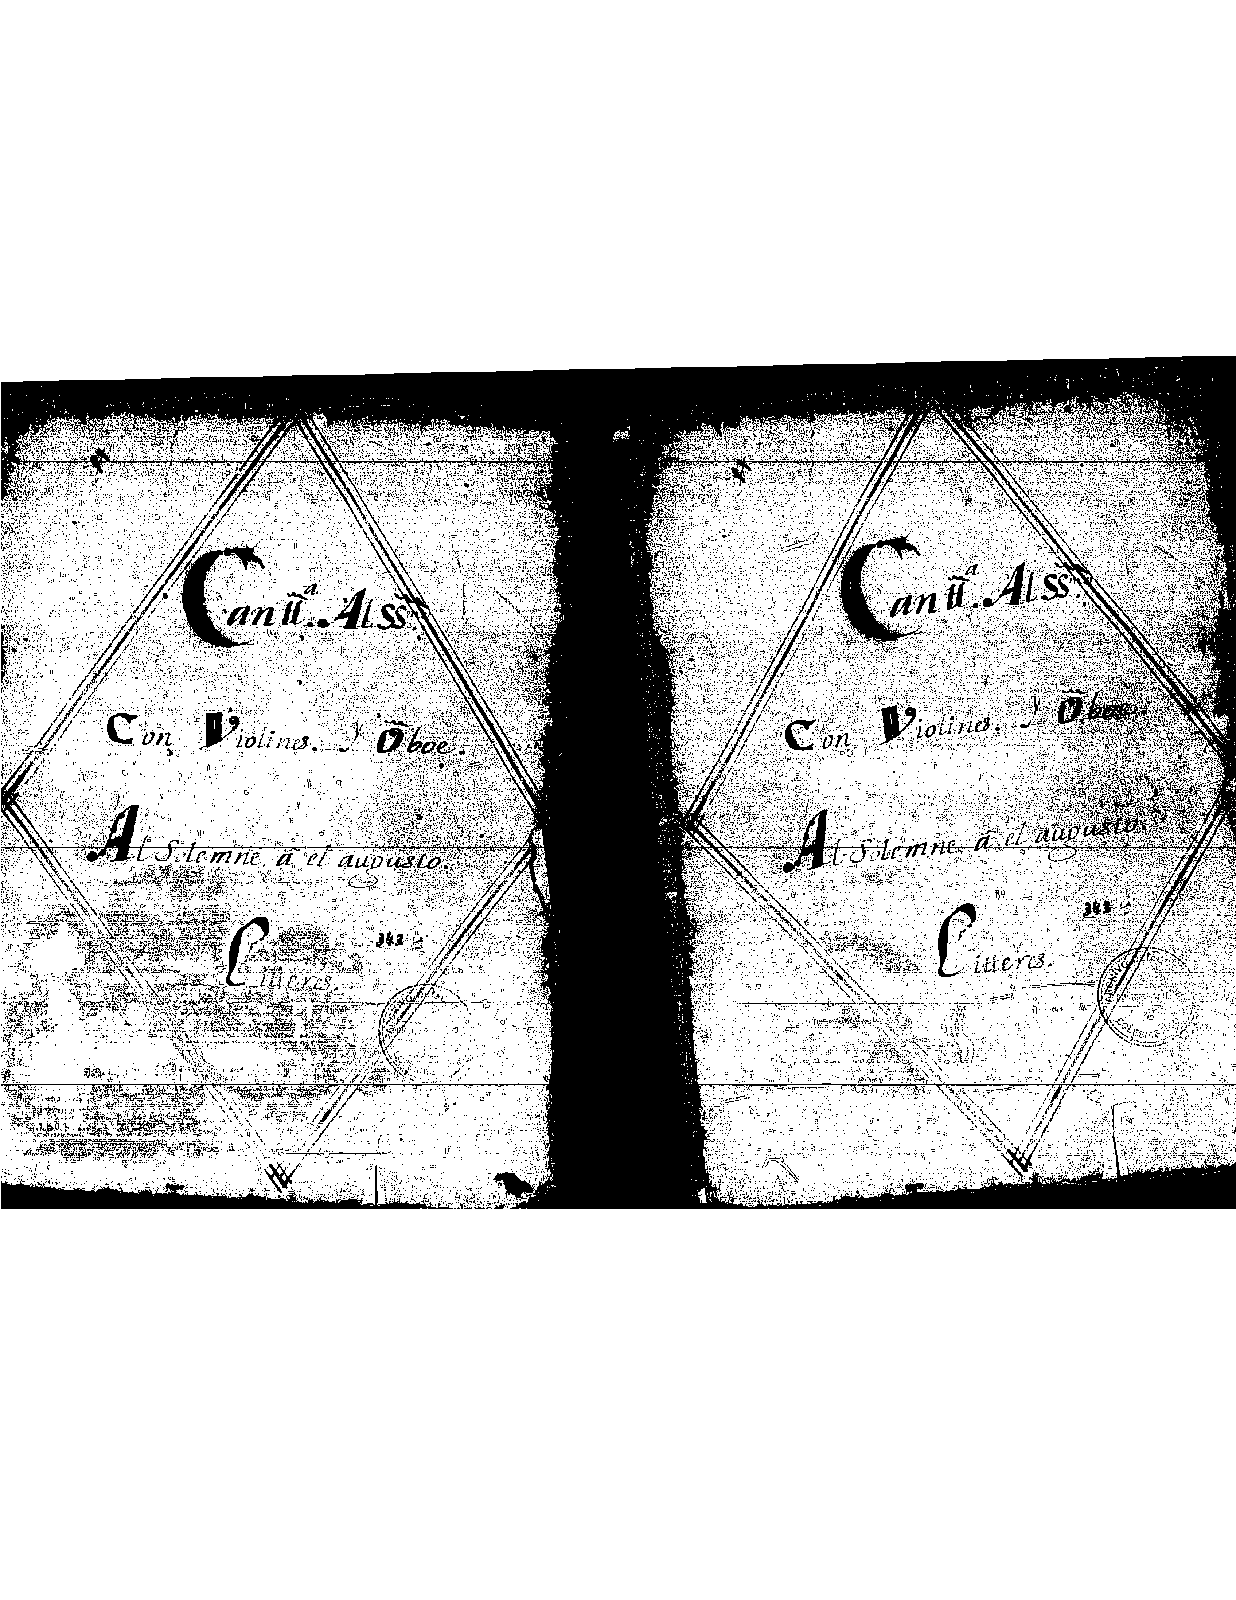 Cantt.ª Al SS.
Con Violines. y Oboe.
Al Solemne a el augusto.
Litteris.
342
Cantt.ª Al SS.
Con Violines. y Oboe.
Al Solemne a el augusto.
342
Litteris.